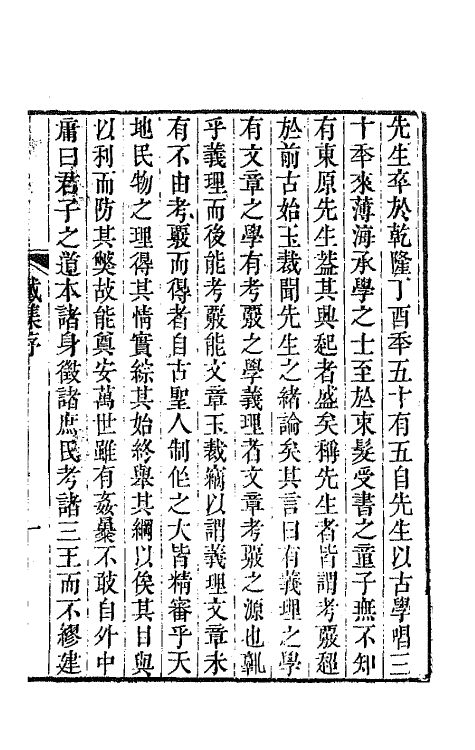 先生卒於乾隆丁酉年五十有五自先生以古學唱三
十年來薄海承學之士至於束髮受書之童子無不知
有東原先生葢其興起者盛矣稱先生者皆謂考覈超
於前古始玉裁聞先生之緒論矣其言曰有義理之學
有文章之學有考覈之學義理者文章考覈之源也孰
乎義理而後能考覈能文章玉裁竊以謂義理文章未
有不由考覈而得者自古聖人制作之大皆精審乎天
地民物之理得其情實綜其始終舉其綱以俟其目與
以利而防其獘故能奠安萬世雖有姦暴不敢自外中
庸曰君子之道本諸身徵諸庶民考諸三王而不繆建
戴集序
一